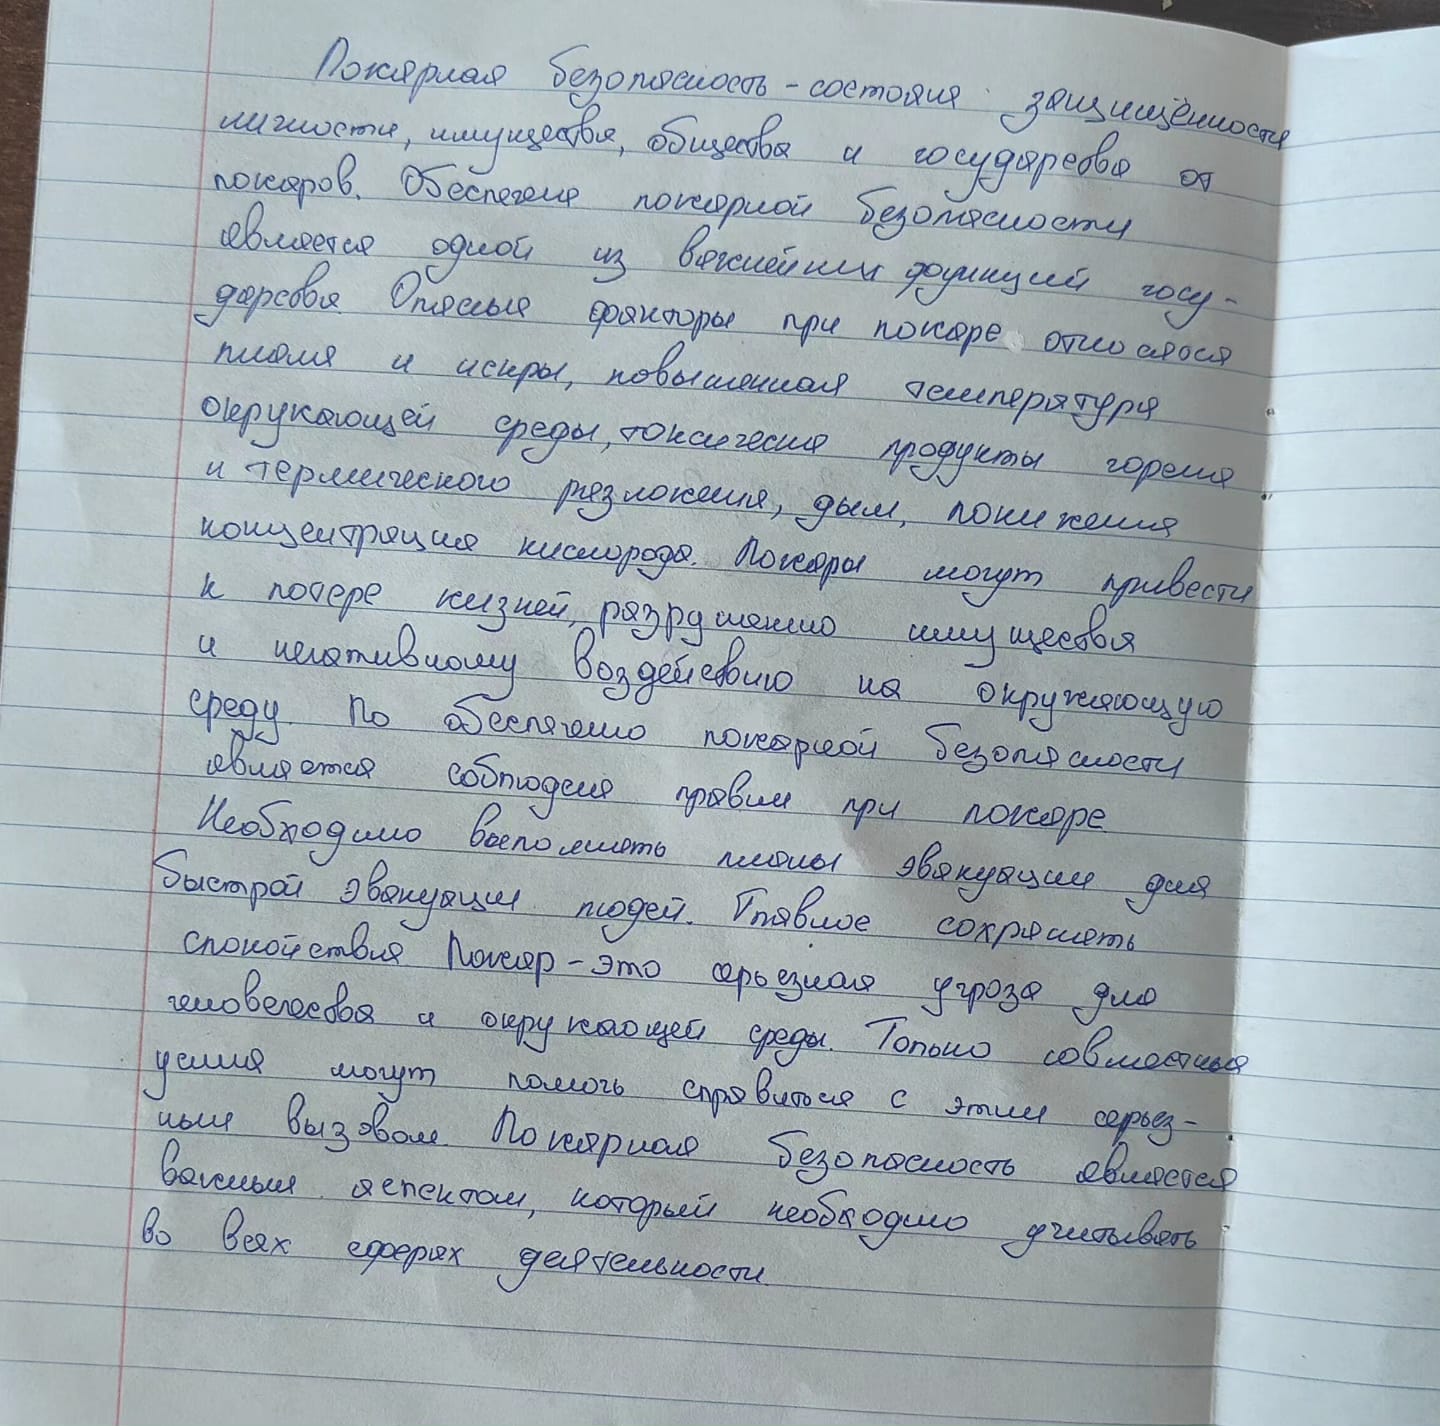 Пожарная безопасность - состояния защищённости
личности, имущества, общества и государсва от
пожаров. Обеспечения пожарной безопасности
является одной из важнейших функций госу-
дарсва. Опасные факторы при пожаре относяся
пламя и искры, повышенная температура
окружающей среды, токсические продукты горения
и термического разложения, дым, понижения
концентрация кислорода. Пожары могут привести
к потере жизней, разрушению имущества
и негативному воздействию на окружающую
среду. По обеспечению пожарной безопасности
является соблюдения правил при пожаре.
Необходимо выполнять планы эвакуации для
быстрой эвакуации людей. Главное сохранять
спокойствия Пожар - это серьезная угроза для
человечества и окружающей среды. Только совместные
усилия могут помочь справиться с этим серьез-
ным вызовом. Пожарная безопасность является
важным аспектом, который необходимо учитывать
во всех сферах деятельности.